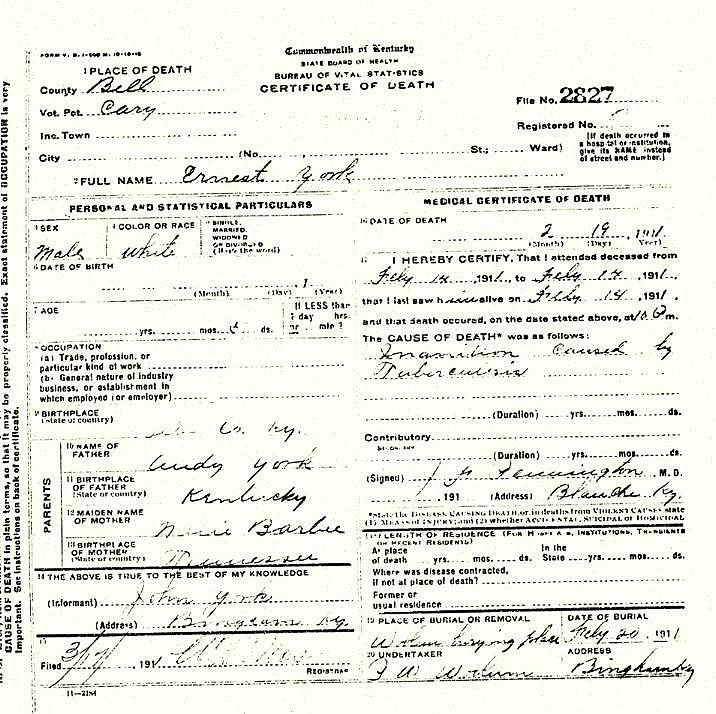 FORM V. S. 1-500 M. 10-10-10
Commonwealth of Kentucky
STATE BOARD OF HEALTH
BUREAU OF VITAL STATISTICS
CERTIFICATE OF DEATH
1 PLACE OF DEATH
County Bell
Vot. Pct. Cary
Inc. Town
City (No. St.; Ward)
File No. 2827
Registered No.
[If death occurred in a hospital or institution, give its NAME instead of street and number.]
2 FULL NAME Ernest York
PERSONAL AND STATISTICAL PARTICULARS
3 SEX
Male
4 COLOR OR RACE
White
5 SINGLE, MARRIED, WIDOWED OR DIVORCED (Write the word)
6 DATE OF BIRTH
, 1
(Month) (Day) (Year)
7 AGE
yrs. mos. ds.
If LESS than 1 day hrs. or min ?
8 OCCUPATION
(a) Trade, profession, or
particular kind of work
(b) General nature of industry
business, or establishment in
which employed (or employer)
9 BIRTHPLACE
(State or country)
Co. Ky.
PARENTS
10 NAME OF FATHER
Andy York
11 BIRTHPLACE OF FATHER (State or country)
Kentucky
12 MAIDEN NAME OF MOTHER
Barbee
13 BIRTHPLACE OF MOTHER (State or country)
Tennessee
14 THE ABOVE IS TRUE TO THE BEST OF MY KNOWLEDGE
(Informant) John York
(Address) Bingham Ky
15
Filed 191
REGISTRAR
11-2184
MEDICAL CERTIFICATE OF DEATH
16 DATE OF DEATH
2 19, 1911
(Month) (Day) (Year)
17 I HEREBY CERTIFY, That I attended deceased from
Feby 14, 1911, to Feby 14, 1911
that I last saw him alive on Feby 14, 1911,
and that death occured, on the date stated above, at m.
The CAUSE OF DEATH* was as follows:
Inanition Caused by
Tuberculsis
(Duration) yrs. mos. ds.
Contributory
SECONDARY
(Duration) yrs. mos. ds.
(Signed) Pennington M. D.
, 191 (Address) Blanche Ky.
*State the DISEASE CAUSING DEATH, or, in deaths from VIOLENT CAUSES state
(1) MEANS OF INJURY; and (2) whether ACCIDENTAL, SUICIDAL OR HOMICIDAL
18 LENGTH OF RESIDENCE (FOR HOSPITALS, INSTITUTIONS, TRANSIENTS
OR RECENT RESIDENTS)
At place of death yrs. mos. ds. In the State yrs. mos. ds.
Where was disease contracted,
if not at place of death?
Former or
usual residence
19 PLACE OF BURIAL OR REMOVAL
burying place
DATE OF BURIAL
Feby 20, 1911
20 UNDERTAKER
ADDRESS
Bingham Ky
CAUSE OF DEATH in plain terms, so that it may be properly classified. Exact statement of OCCUPATION is very
important. See instructions on back of certificate.